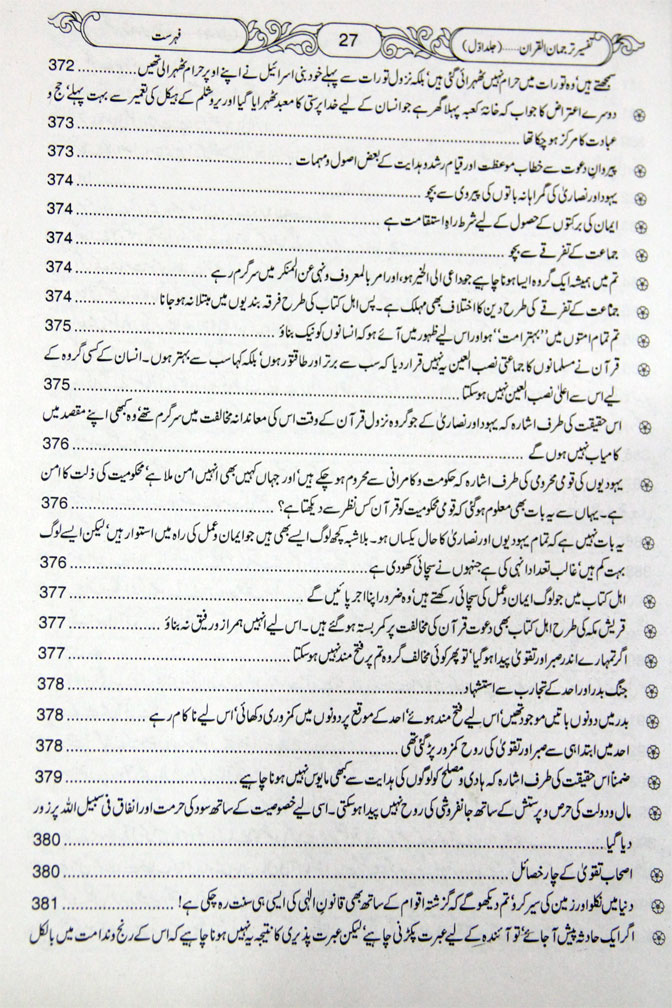 تفسیر ترجمان القرآن.....(جلد اوّل) 27 فہرست
سمجھتے ہیں‘ وہ تورات میں حرام نہیں ٹھہرائی گئی ہیں‘ بلکہ نزول تورات سے پہلے خود بنی اسرائیل نے اپنے اوپر حرام ٹھہرا لی تھیں ........... 372
دوسرے اعتراض کا جواب کہ خانۂ کعبہ پہلا گھر ہے جو انسان کے لیے خدا پرستی کا معبد ٹھہرایا گیا اور یروشلم کے ہیکل کی تعمیر سے بہت پہلے‘ حج و
عبادت کا مرکز ہو چکا تھا ........... 373
پیروانِ دعوت سے خطابِ موعظت اور قیامِ رشد و ہدایت کے بعض اصول و مہمات ........... 373
یہود اور نصاریٰ کی گمراہانہ باتوں کی پیروی سے بچو ........... 374
ایمان کی برکتوں کے حصول کے لیے شرطِ راہ استقامت ہے ........... 374
جماعت کے تفرقے سے بچو ........... 374
تم میں ہمیشہ ایک گروہ ایسا ہونا چاہیے جو داعی الی الخیر ہو‘ اور امر بالمعروف و نہی عن المنکر میں سرگرم رہے ........... 374
جماعت کے تفرقے کی طرح دین کا اختلاف بھی مہلک ہے۔ پس اہل کتاب کی طرح فرقہ بندیوں میں مبتلا نہ ہو جانا ........... 374
تم تمام امتوں میں ’’بہتر امت‘‘ ہو اور اس لیے ظہور میں آئے ہو کہ انسانوں کو نیک بناؤ ........... 375
قرآن نے مسلمانوں کا جماعتی نصب العین یہ نہیں قرار دیا کہ سب سے برتر اور طاقتور ہوں‘ بلکہ کہا سب سے بہتر ہوں۔ انسان کے کسی گروہ کے
لیے اس سے اعلیٰ نصب العین نہیں ہو سکتا ........... 375
اس حقیقت کی طرف اشارہ کہ یہود اور نصاریٰ کے جو گروہ نزول قرآن کے وقت اس کی معاندانہ مخالفت میں سرگرم تھے‘ وہ کبھی اپنے مقصد میں
کامیاب نہیں ہوں گے ........... 376
یہودیوں کی قومی محرومی کی طرف اشارہ کہ حکومت و کامرانی سے محروم ہو چکے ہیں‘ اور جہاں کہیں بھی انہیں امن ملا ہے‘ محکومیت کی ذلت کا امن
ہے۔ یہاں سے یہ بات بھی معلوم ہو گئی کہ قومی محکومیت کو قرآن کس نظر سے دیکھتا ہے؟ ........... 376
یہ بات نہیں ہے کہ تمام یہودیوں اور نصاریٰ کا حال یکساں ہو۔ بلاشبہ کچھ لوگ ایسے بھی ہیں جو ایمان و عمل کی راہ میں استوار ہیں‘ لیکن ایسے لوگ
بہت کم ہیں‘ غالب تعداد انہی کی ہے جنہوں نے سچائی کھو دی ہے ........... 376
اہل کتاب میں جو لوگ ایمان و عمل کی سچائی رکھتے ہیں‘ وہ ضرور اپنا اجر پائیں گے ........... 377
قریش مکہ کی طرح اہل کتاب بھی دعوت قرآن کی مخالفت پر کمربستہ ہو گئے ہیں۔ اس لیے انہیں ہمراز و رفیق نہ بناؤ ........... 377
اگر تمہارے اندر صبر اور تقویٰ پیدا ہو گیا‘ تو پھر کوئی مخالف گروہ تم پر فتح مند نہیں ہو سکتا ........... 377
جنگ بدر اور احد کے تجارب سے استشہاد ........... 378
بدر میں دونوں باتیں موجود تھیں‘ اس لیے فتح مند ہوئے‘ احد کے موقع پر دونوں میں کمزوری دکھائی‘ اس لیے ناکام رہے ........... 378
احد میں ابتدا ہی سے صبر اور تقویٰ کی روح کمزور پڑ گئی تھی ........... 378
ضمناً اس حقیقت کی طرف اشارہ کہ ہادی و مصلح کو لوگوں کی ہدایت سے کبھی مایوس نہیں ہونا چاہیے ........... 379
مال و دولت کی حرص و پرستش کے ساتھ جانفروشی کی روح نہیں پیدا ہو سکتی۔ اسی لیے خصوصیت کے ساتھ سود کی حرمت اور انفاق فی سبیل اللہ پر زور
دیا گیا ........... 380
اصحاب تقویٰ کے چار خصائل ........... 380
دنیا میں نکلو اور زمین کی سیر کرو‘ تم دیکھو گے کہ گزشتہ اقوام کے ساتھ بھی قانونِ الٰہی کی ایسی ہی سنت رہ چکی ہے! ........... 381
اگر ایک حادثہ پیش آ جائے‘ تو آئندہ کے لیے عبرت پکڑنی چاہیے‘ لیکن عبرت پذیری کا نتیجہ یہ نہیں ہونا چاہیے کہ اس کے رنج و ندامت میں بالکل